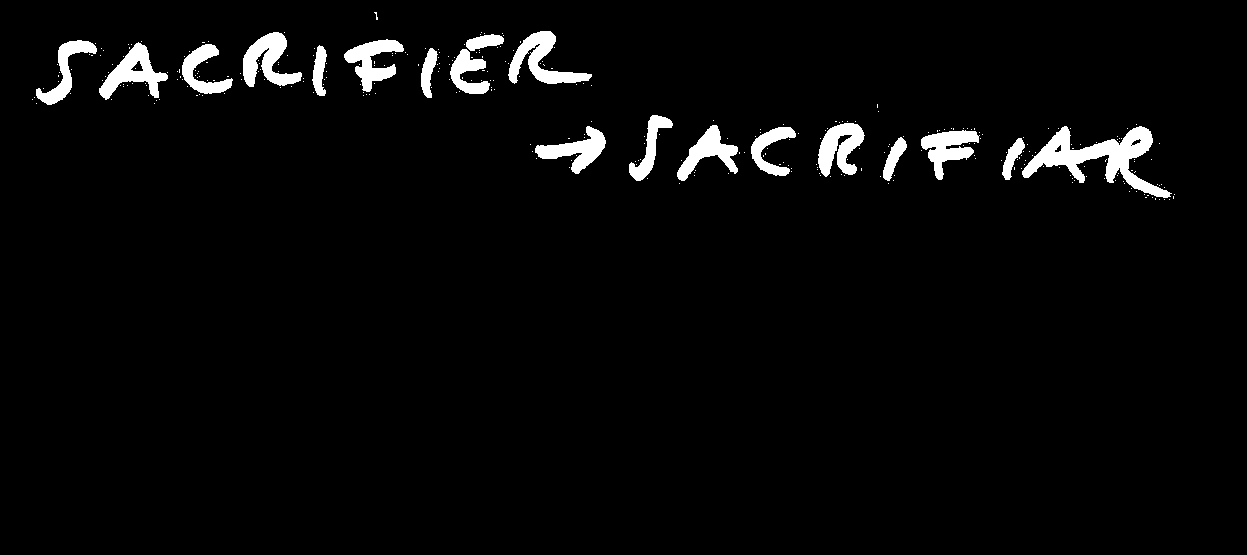 SACRIFIER
→ SACRIFIAR